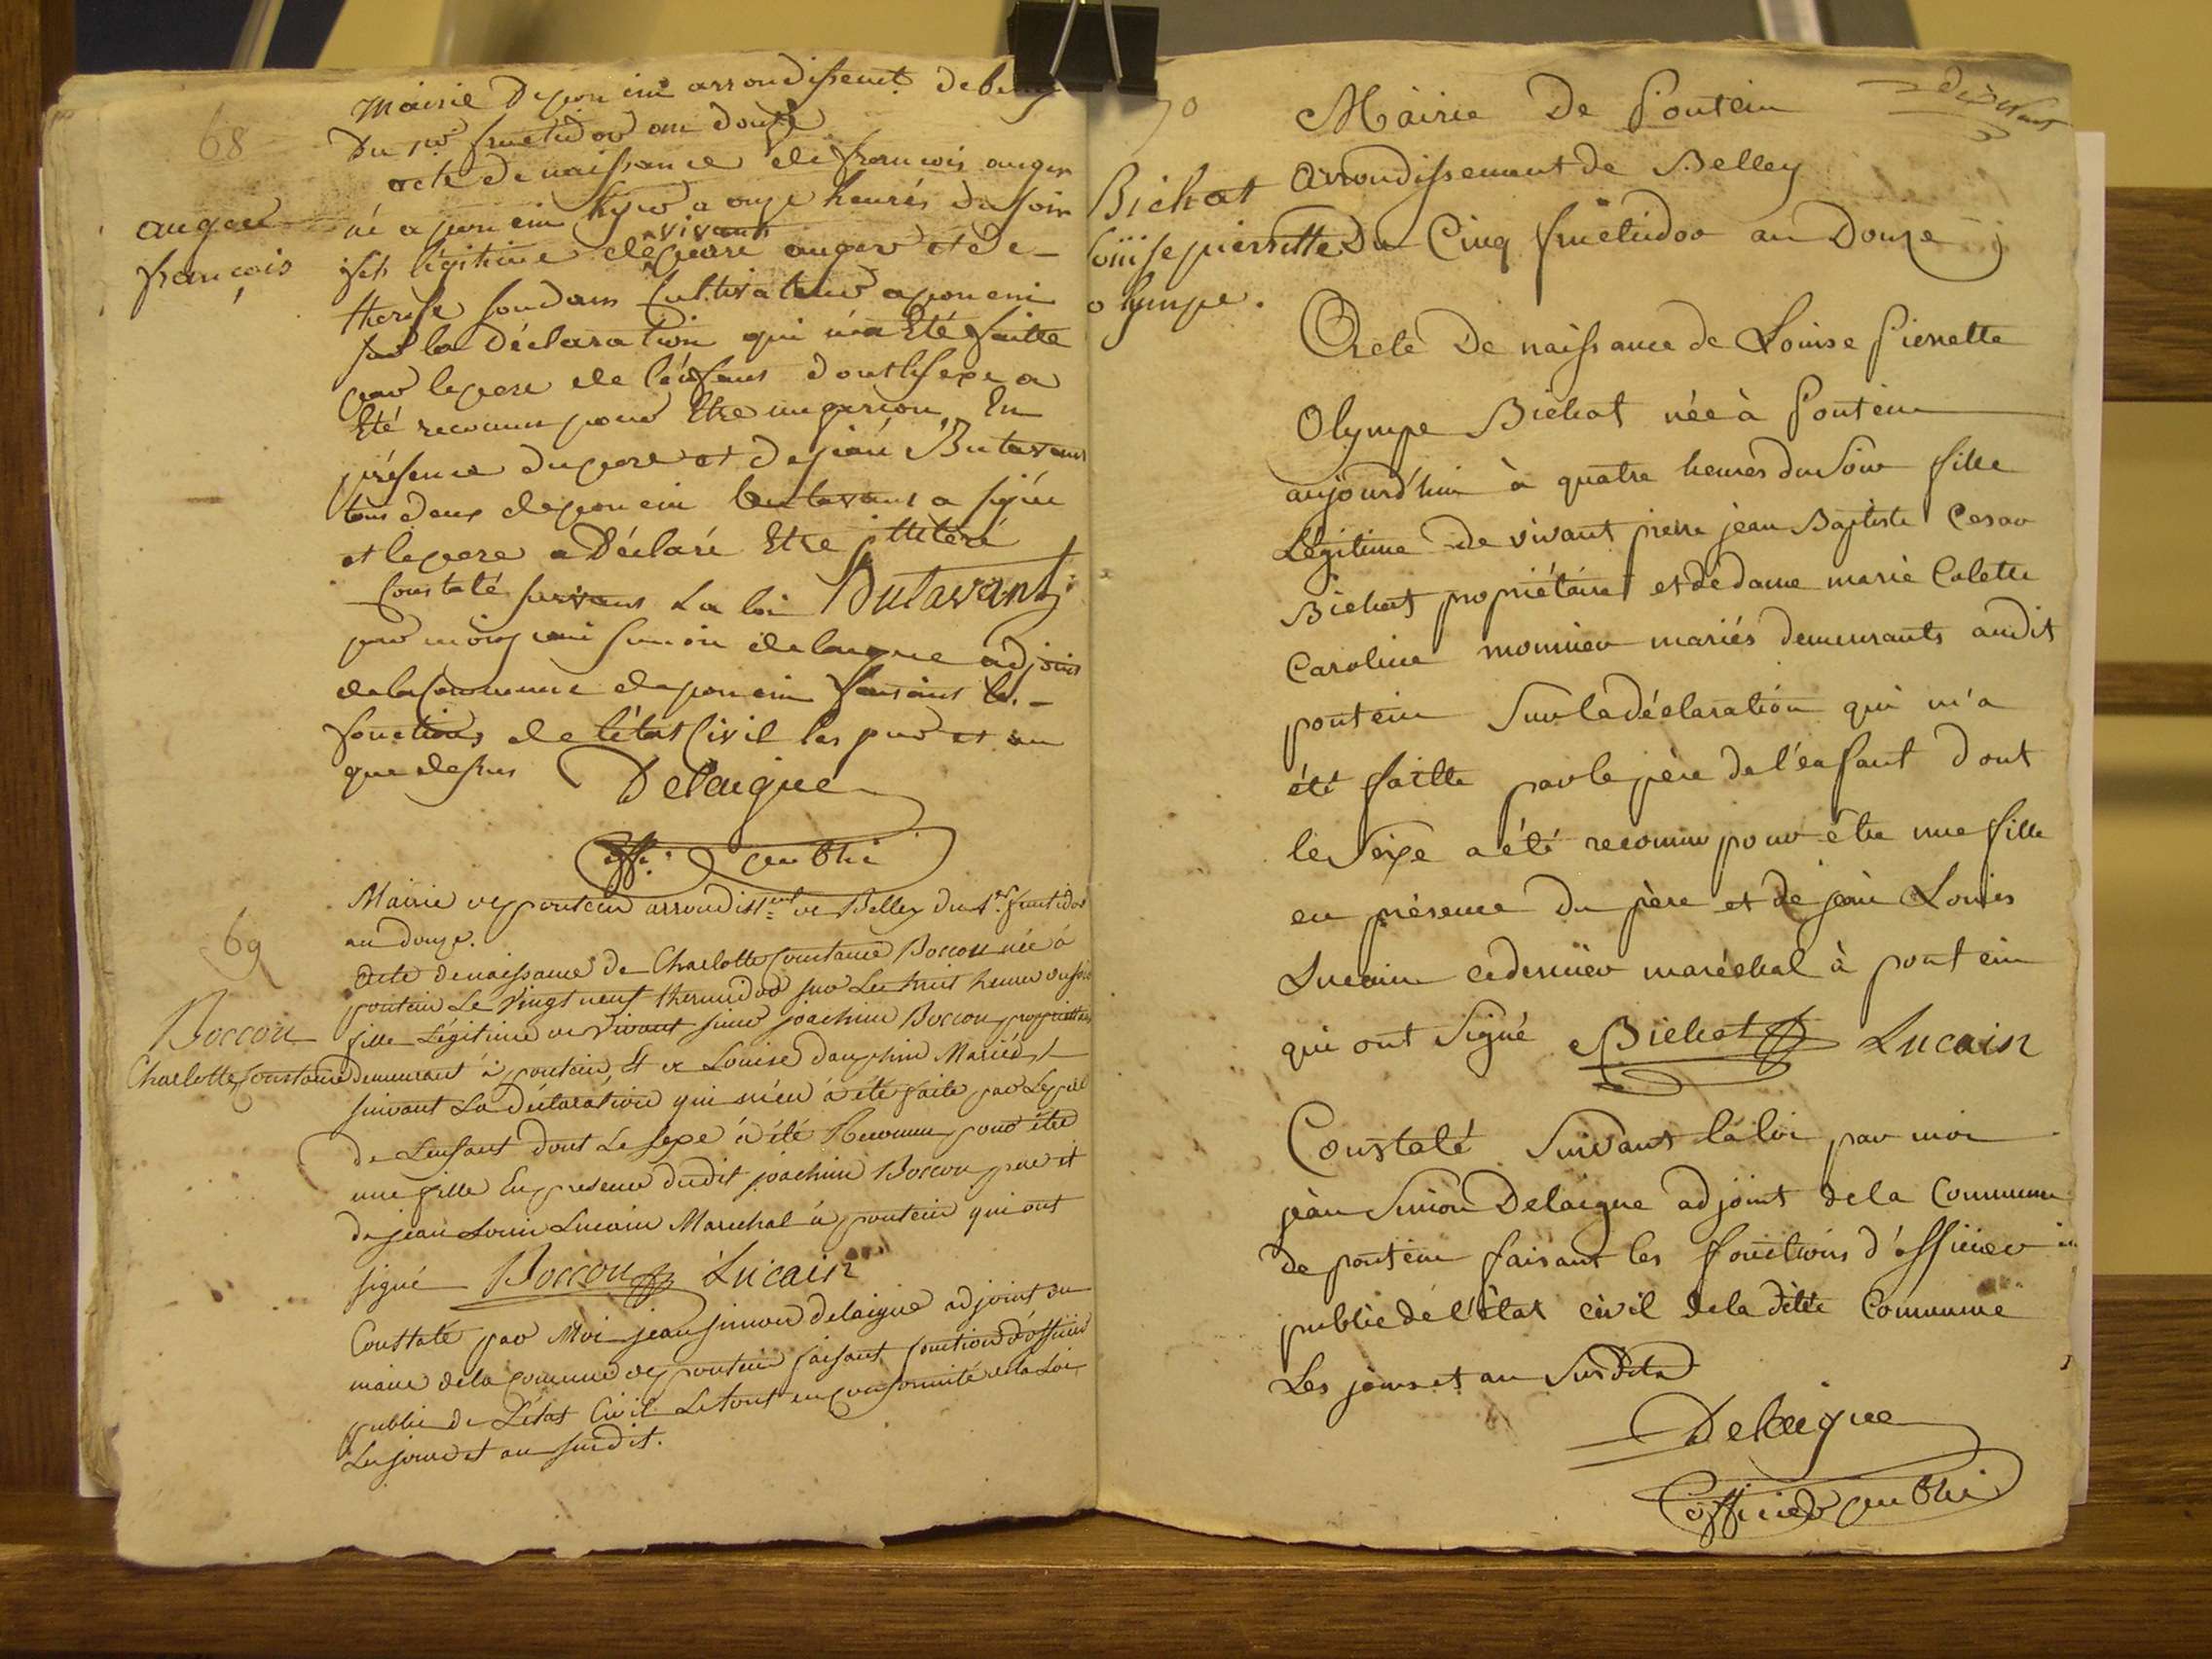 68
Mairie de poncin arrondissent de
Du 1er fructidor an douze
acte de naissance de françois auger
auger
françois
né a poncin hyer a onze heures du soir
vivant
fils légitime de pierre auger et de
therese soudan Cultivateur a poncin
sur la déclaration qui m'a Eté faitte
par le pere de l'enfant dont le sexe a
Eté reconnu pour Etre un garcon En
présence du pere et de jean Butavant
tous deux de poncin butavant a signé
et le pere a Déclaré Etre illitéré
Constaté suivant La loi Butavant
par moi jean simon delaigue adjoint
de la Commune de poncin faisant les
fonctions de l'état Civil les jour et an
que dessus Delaigue
offi. publi
69
Mairie de pontcin arrondissent de Belley du 1er fructidor
an douze.
Acte de naissance de Charlotte Constance Boccon née à
Boccon
Charlotte Constance
pontcin Le Vingt neuf thermidor sur Les huit heures du soir
fille Légitime de Vivant sieur joachim Boccon propriettaire
demeurant à pontcin Et de Louise dauphin Mariés,
suivant La déclaration qui m'en à été faite par Le père
de L'enfant dont Le sexe à été Reconnu pour être
une fille En presence dudit joachim Boccon pere et
de jean Louis Lucain Marechal à pontcin qui ont
signé Boccon Lucain
Constaté par Moi jean simon delaigue adjoint au
maire de la Commune de pontcin faisant fonction d'officier
public de L'état Civil Le tout en Conformité de la Loi
Les jour et an susdit.
70
Mairie De Pontcin
Arrondissement de Belley
Bichat
Louise pierrette
olympe.
Du Cinq fructidor an Douze
Acte de naissance de Louise Pierrette
Olympe Bichat née à Pontcin
aujourd'hui à quatre heures du Soir fille
Légitime de vivant pierre jean Baptiste Cesar
Bichat propriétaire et de dame marie Colette
Caroline monnier mariés demeurants audit
pontcin Sur la déclaration qui m'a
été faitte par le père de l'enfant dont
le Sexe a été reconnu pour être une fille
en présence du père et de jean Louis
Lucain ce dernier maréchal à pontcin
qui ont Signé Bichat Lucain
Constaté Suivant la loi par moi
jean Simon Delaigue adjoint de la Commune
de pontcin faisant les fonctions d'officier
public de l'état civil de la ditte Commune
Les jour et an Susdits
Delaigue
officier publi